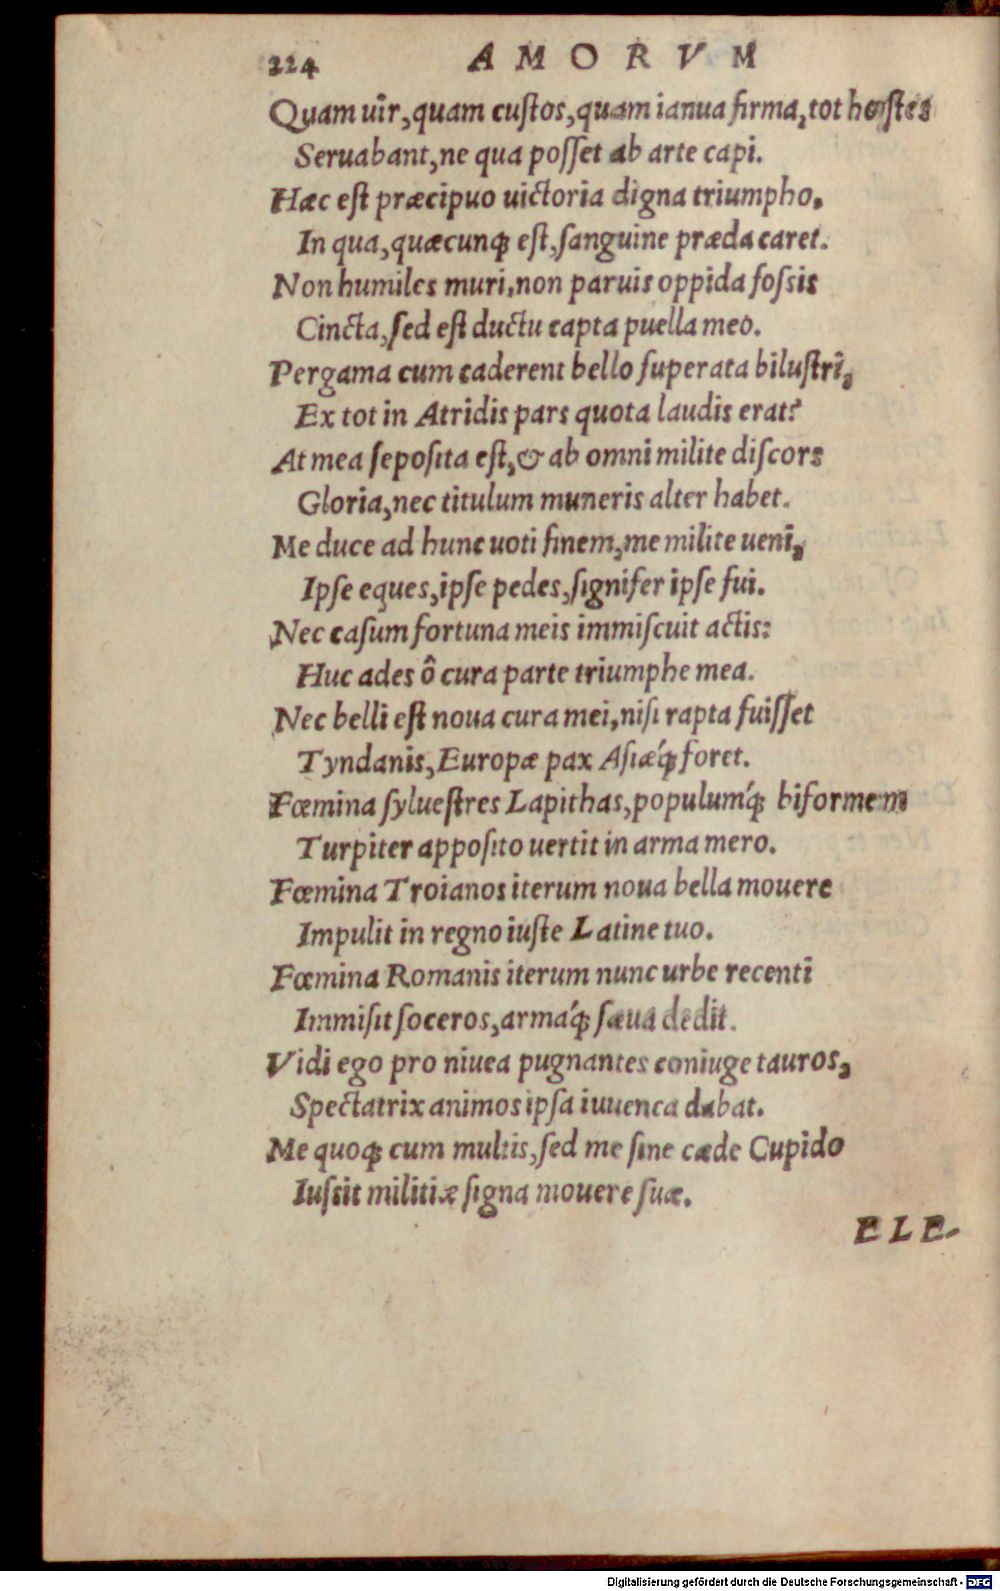 224 AMORVM
Quam uir, quam custos, quam ianua firma, tot hostes
Seruabant, ne qua posset ab arte capi.
Hæc est præcipuo uictoria digna triumpho,
In qua, quæcunq; est, sanguine præda caret.
Non humiles muri, non paruis oppida fossis
Cincta, sed est ductu capta puella meo.
Pergama cum caderent bello superata bilustri,
Ex tot in Atridis pars quota laudis erat?
At mea seposita est, & ab omni milite discors
Gloria, nec titulum muneris alter habet.
Me duce ad hunc uoti finem, me milite ueni,
Ipse eques, ipse pedes, signifer ipse fui.
Nec casum fortuna meis immiscuit actis:
Huc ades ô cura parte triumphe mea.
Nec belli est noua cura mei, nisi rapta fuisset
Tyndanis, Europæ pax Asiæq́; foret.
Fœmina syluestres Lapithas, populumq́; biformem
Turpiter apposito uertit in arma mero.
Fœmina Troianos iterum noua bella mouere
Impulit in regno iuste Latine tuo.
Fœmina Romanis iterum nunc urbe recenti
Immisit soceros, armaq́; sæua dedit.
Vidi ego pro niuea pugnantes coniuge tauros,
Spectatrix animos ipsa iuuenca dabat.
Me quoq; cum multis, sed me sine cæde Cupido
Iussit militiæ signa mouere suæ.
ELE-
Digitalisierung gefördert durch die Deutsche Forschungsgemeinschaft - DFG